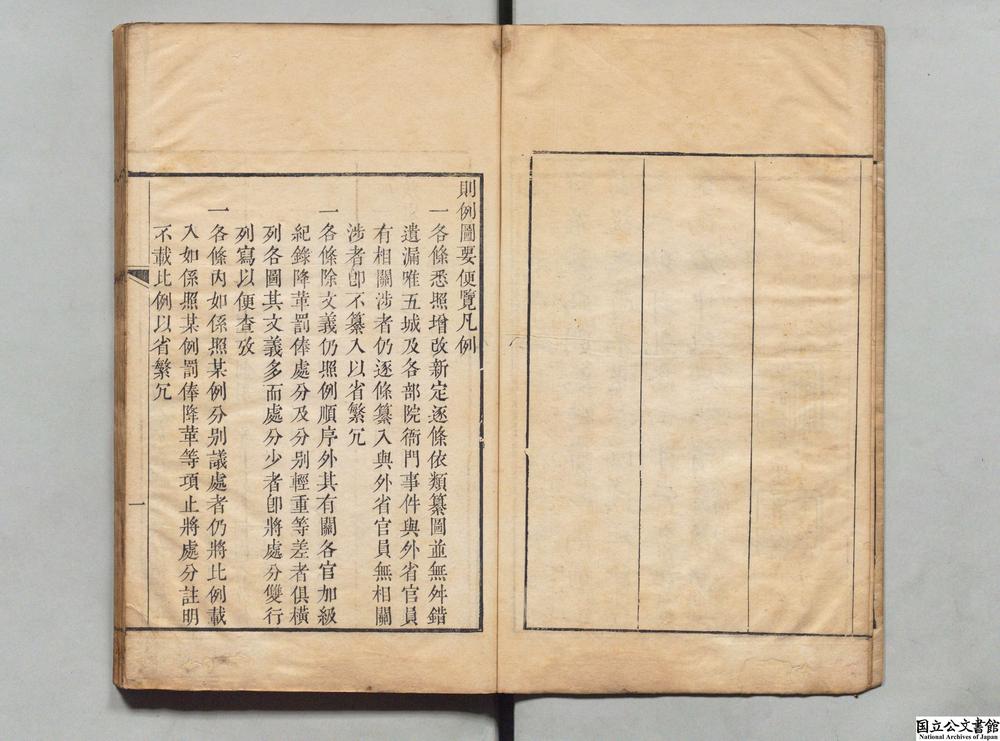 則例圖要便覽凡例
一各條悉照增改新定逐條依類纂圖並無舛錯
遺漏唯五城及各部院衙門事件與外省官員
有相關涉者仍逐條纂入與外省官員無相關
涉者卽不纂入以省繁冗
一各條除文義仍照例順序外其有關各官加級
紀錄降革罰俸處分及分別輕重等差者俱橫
列各圖其文義多而處分少者卽將處分雙行
列寫以便查攷
一各條內如係照某例分別議處者仍將比例載
入如係照某例罰俸降革等項止將處分註明
不載比例以省繁冗
一
国立公文書館
National Archives of Japan